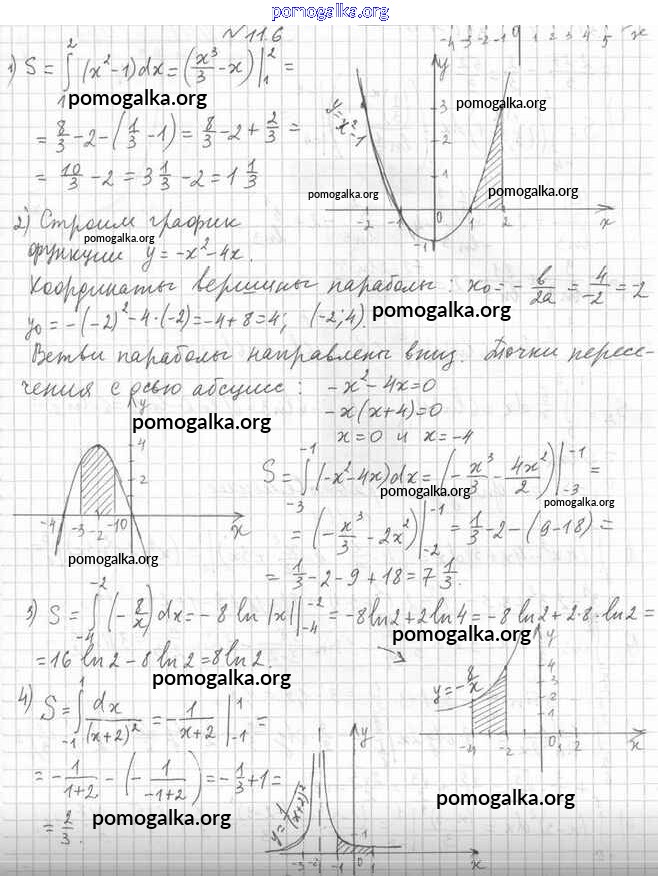 pomogalka.org
№ 11.6
1) S = ∫₁² (x² - 1)dx = (x³/3 - x)|₁² =
pomogalka.org
= 8/3 - 2 - (1/3 - 1) = 8/3 - 2 + 2/3 =
= 10/3 - 2 = 3 1/3 - 2 = 1 1/3
-4 -3 -2 -1 0 1 2 3 4 5 x
y
3
2
1
y = x² - 1
pomogalka.org
pomogalka.org
pomogalka.org
-2 -1 1 2 x
-1
2) Строим график
pomogalka.org
функции y = -x² - 4x.
Координаты вершины параболы: x₀ = - b/2a = 4/-2 = -2
y₀ = -(-2)² - 4·(-2) = -4 + 8 = 4; (-2; 4).
pomogalka.org
Ветви параболы направлены вниз. Точки пересе-
чения с осью абсцисс: -x² - 4x = 0
-x(x + 4) = 0
x = 0 и x = -4
pomogalka.org
y
4
2
-4 -3 -2 -1 0 x
pomogalka.org
S = ∫₋₃⁻¹ (-x² - 4x)dx = (- x³/3 - 4x²/2)|₋₃⁻¹ =
pomogalka.org
pomogalka.org
= (- x³/3 - 2x²)|₋₂⁻¹ = 1/3 - 2 - (9 - 18) =
= 1/3 - 2 - 9 + 18 = 7 1/3.
3) S = ∫₋₄⁻² (- 8/x) dx = -8 ln |x| |₋₄⁻² = -8 ln 2 + 2 ln 4 = -8 ln 2 + 2·8·ln 2 =
pomogalka.org
= 16 ln 2 - 8 ln 2 = 8 ln 2.
pomogalka.org
y = - 8/x
y
4
2
-4 -2 0 1 2 x
4) S = ∫₋₁¹ dx/(x + 2)² = - 1/(x + 2) |₋₁¹ =
= - 1/(1+2) - (- 1/(-1+2)) = - 1/3 + 1 =
= 2/3.
pomogalka.org
y = 1/(x+2)²
y
1
-3 -2 -1 1 x
pomogalka.org